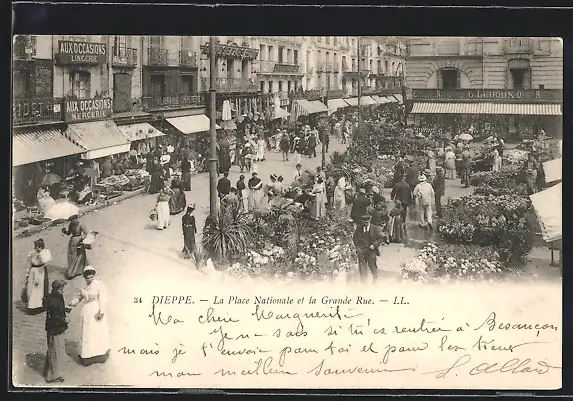 AUX OCCASIONS
LINGERIE
AUX OCCASIONS
MERCERIE
G. LEROUX
34 DIEPPE. — La Place Nationale et la Grande Rue. — LL.
Ma chère Marguerite
Je ne sais si tu es rentrée à Besançon
mais je t'envoie pour toi et pour les tiens
mon meilleur souvenir. S. Allard